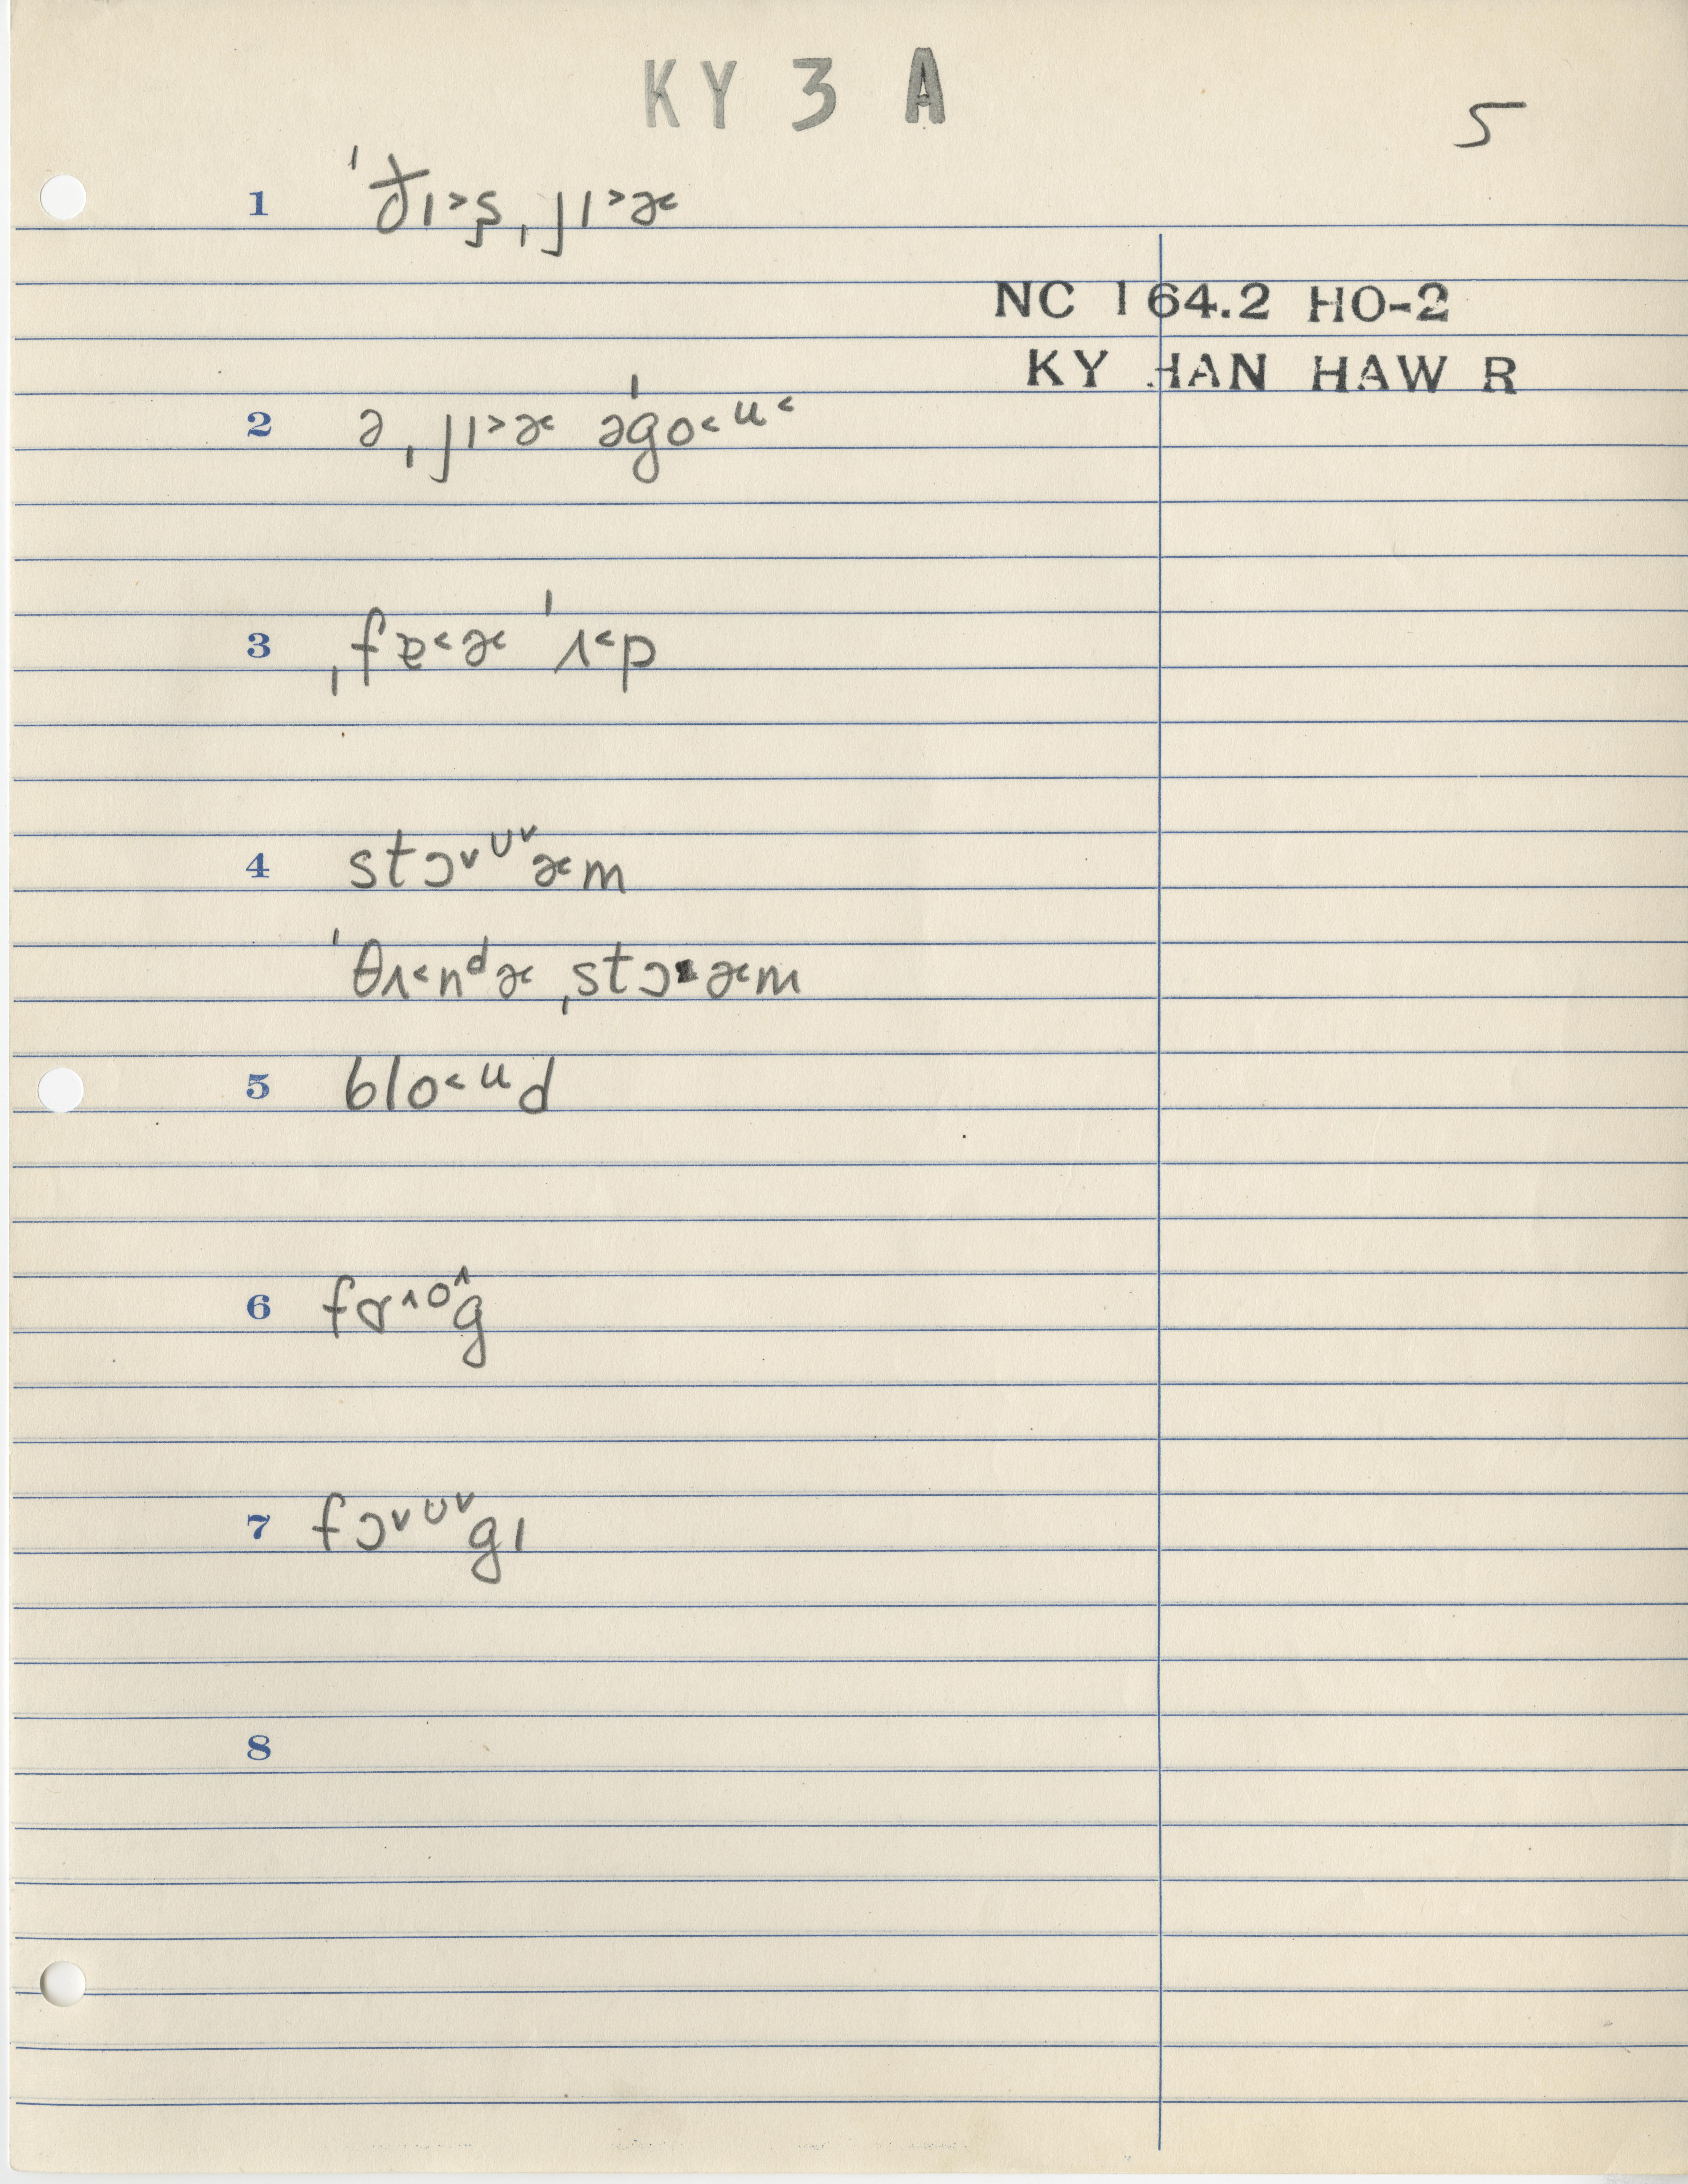 KY 3 A
5
1 ˈð̵ɪ˃s̬ˌjɪ˃ɚ
NC 164.2 HO-2
KY HAN HAW R
2 əˌjɪ˃ɚ əˈgo˂ʉ˂
3 ˌfɐ˂ɚ ˈʌ˂p
4 stɔ˅ᴜ˅ɚm
ˈθʌ˂nᵈɚˌstɔɚm
5 blo˂ʉd
6 fɒ˄o˄g
7 fɔ˅ᴜ˅gɪ
8